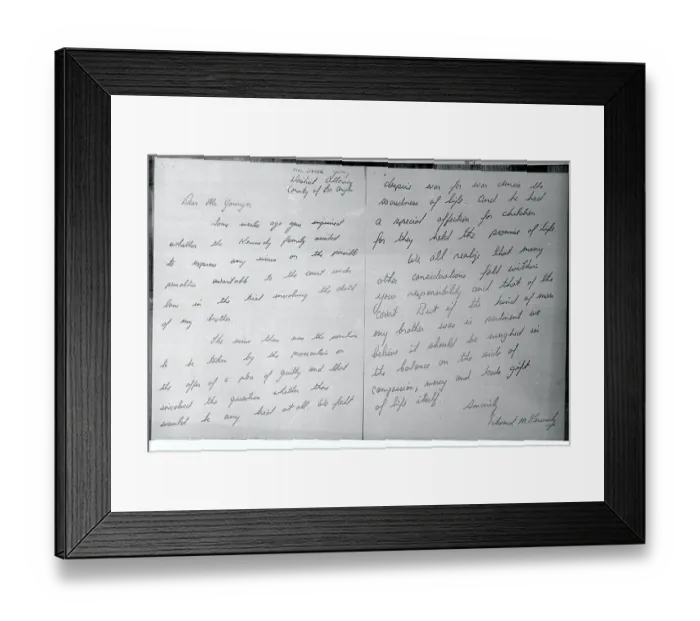 District Attorney
County of Los Angeles
Dear Mr. Younger
Some weeks ago you inquired
whether the Kennedy family wished
to express any views on the possible
penalties available to the court under
law in the trial involving the death
of my brother
The issue then was the position
to be taken by the prosecution on
the offer of a plea of guilty and that
involved the question whether there
would be any trial at all. We felt
sacredness of life. And he had
a special affection for children
for they held the promise of life
We all realize that many
other considerations fall within
your responsibility and that of the
court. But if the kind of man
my brother was is pertinent we
believe it should be weighed in
the balance on the side of
compassion, mercy and God's gift
of life itself.
Sincerely
Edward M. Kennedy